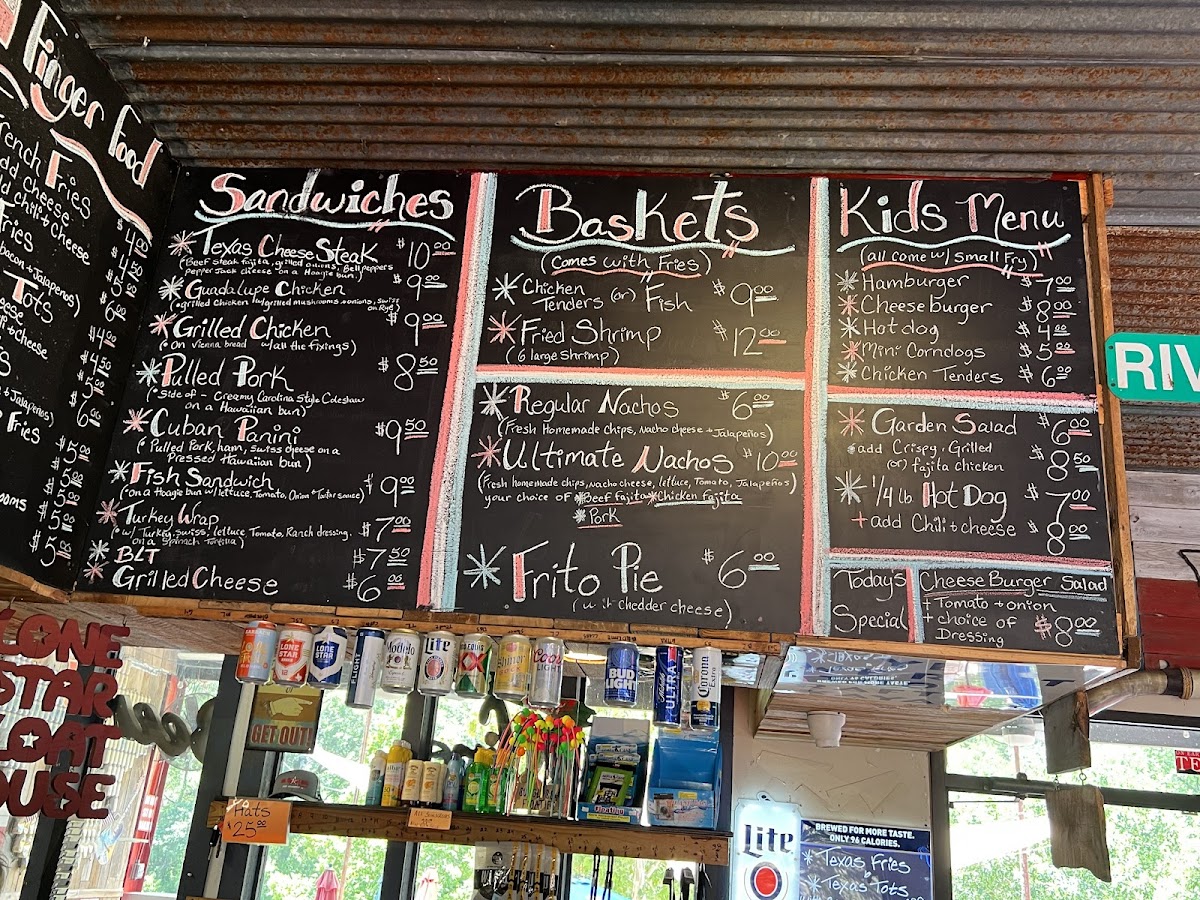 Finger Food
French Fries $4.00
add cheese $4.50
add chili + cheese $5.00
Fries $6.00
bacon + Jalapeños)
Tots $4.00
cheese $4.50
chili + cheese $5.00
$6.00
+ Jalapeños)
Fries
Sandwiches
Texas Cheese Steak $10.00
(Beef steak fajita, grilled onions, Bell peppers
pepper Jack cheese on a Hoagie bun.)
Guadalupe Chicken $9.00
(grilled Chicken w/grilled mushrooms + onions, Swiss
on Rye)
Grilled Chicken $9.00
(On Vienna bread w/all the fixings)
Pulled Pork $8.50
(Side of - Creamy Carolina Style Coleslaw
on a Hawaiian bun)
Cuban Panini $9.50
(Pulled Pork, ham, swiss cheese on a
Pressed Hawaiian bun)
Fish Sandwich $9.00
(on a Hoagie bun w/ lettuce, Tomato, Onion + Tartar sauce)
Turkey Wrap $7.00
(w/ Turkey, swiss, lettuce, Tomato, Ranch dressing.
on a Spinach Tortilla)
BLT $7.50
Grilled Cheese $6.00
Baskets
(Comes with Fries)
Chicken
Tenders (or) Fish $9.00
Fried Shrimp $12.00
(6 large Shrimp)
Regular Nachos $6.00
(Fresh Homemade chips, Nacho cheese + Jalapeños)
Ultimate Nachos $10.00
(Fresh homemade chips, Nacho cheese, lettuce, Tomato, Jalapeños)
your choice of *Beef fajita *Chicken fajita
*Pork
Frito Pie $6.00
(with chedder cheese)
Kids Menu
(all come w/ Small Fry)
Hamburger $7.00
Cheeseburger $8.00
Hot dog $4.00
Mini Corndogs $5.00
Chicken Tenders $6.00
Garden Salad $6.00
add Crispy, Grilled
(or) fajita chicken $8.50
1/4 lb Hot Dog $7.00
+ add Chili + cheese $8.00
Todays
Special
Cheese Burger Salad
+ Tomato + onion
+ choice of
Dressing $8.00
RIV
LONE
STAR
FLOAT
HOUSE
LONE STAR
LONE STAR
LIGHT
Modelo
Lite
Shiner
Coors
LIGHT
BUD
LIGHT
ULTRA
Corona
Extra
GET OUT!
Hats
$25.00
Lite
BREWED FOR MORE TASTE.
ONLY 96 CALORIES.
Texas Fries
Texas Tots
TE